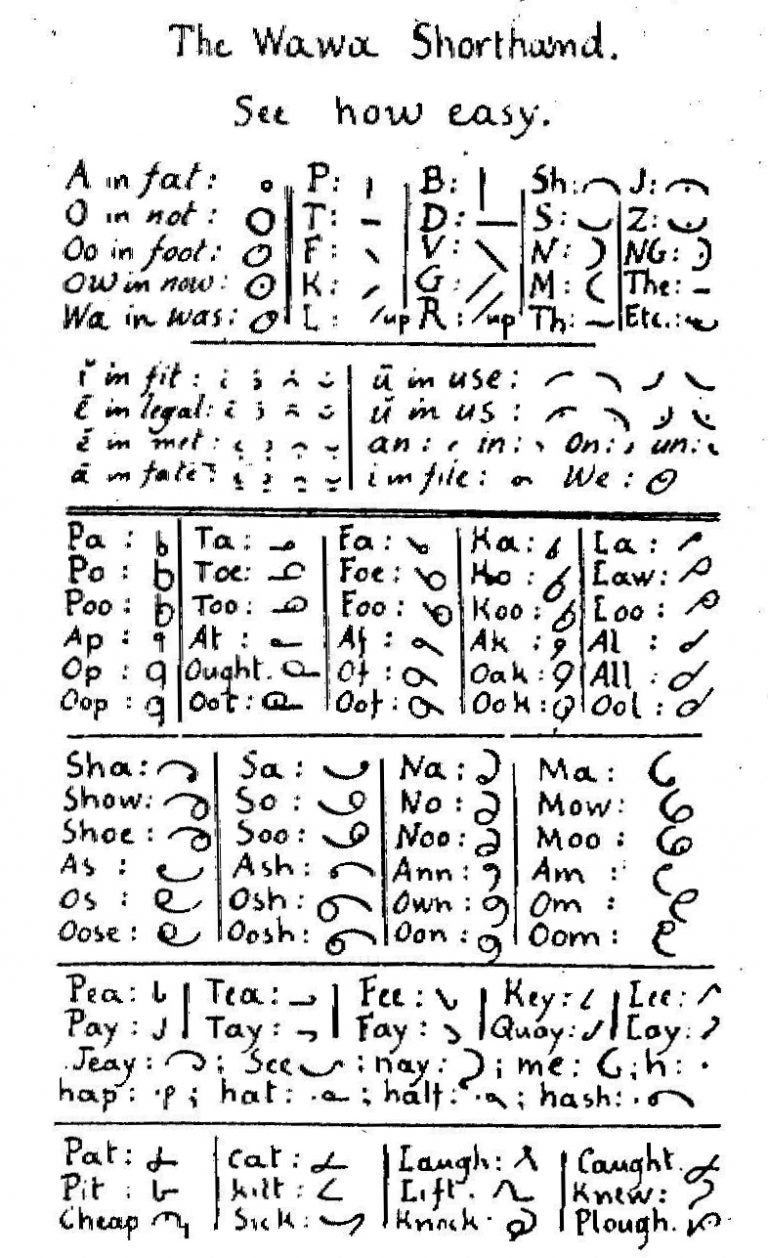 The Wawa Shorthand.
See how easy.
A in fat: P: B: Sh: J:
O in not: T: D: S: Z:
Oo in foot: F: V: N: NG:
Ow in now: K: G: M: The:
Wa in was: L: /up R: //up Th: Etc.:
ĭ in fit: ū in use:
ē in legal: ŭ in us:
ĕ in met: an: in: On: un:
ā in fate: i in file: We:
Pa: Ta: Fa: Ka: La:
Po: Toe: Foe: Ko: Law:
Poo: Too: Foo: Koo: Loo:
Ap: At: Af: Ak: Al:
Op: Ought. Of: Oak: All:
Oop: Oot: Oof: Ook: Ool:
Sha: Sa: Na: Ma:
Show: So: No: Mow:
Shoe: Soo: Noo: Moo:
As: Ash: Ann: Am:
Os: Osh: Own: Om:
Oose: Oosh: Oon: Oom:
Pea: Tea: Fee: Key: Lee:
Pay: Tay: Fay: Quay: Lay:
Jeay: ; See ; nay: ; me: ; h:
hap: ; hat: ; half: ; hash:
Pat: cat: Laugh: Caught.
Pit: kilt: Lift. Knew:
Cheap Sick: Knock. Plough.